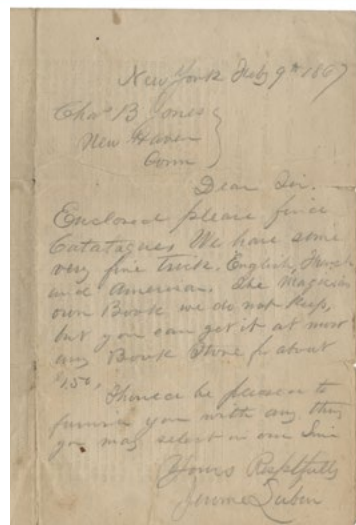 New York Feby 9th 1867
Chas B Jones
New Haven
Conn
Dear Sir.
Enclosed please find
Catalogues We have some
very fine trick. English, French
and American. The Magicians
own Book we do not keep,
but you can get it at most
any Book Store for about
$1.50.
Should be pleased to
furnish you with any thing
you may select in our line
Yours Resptfully
Jerome